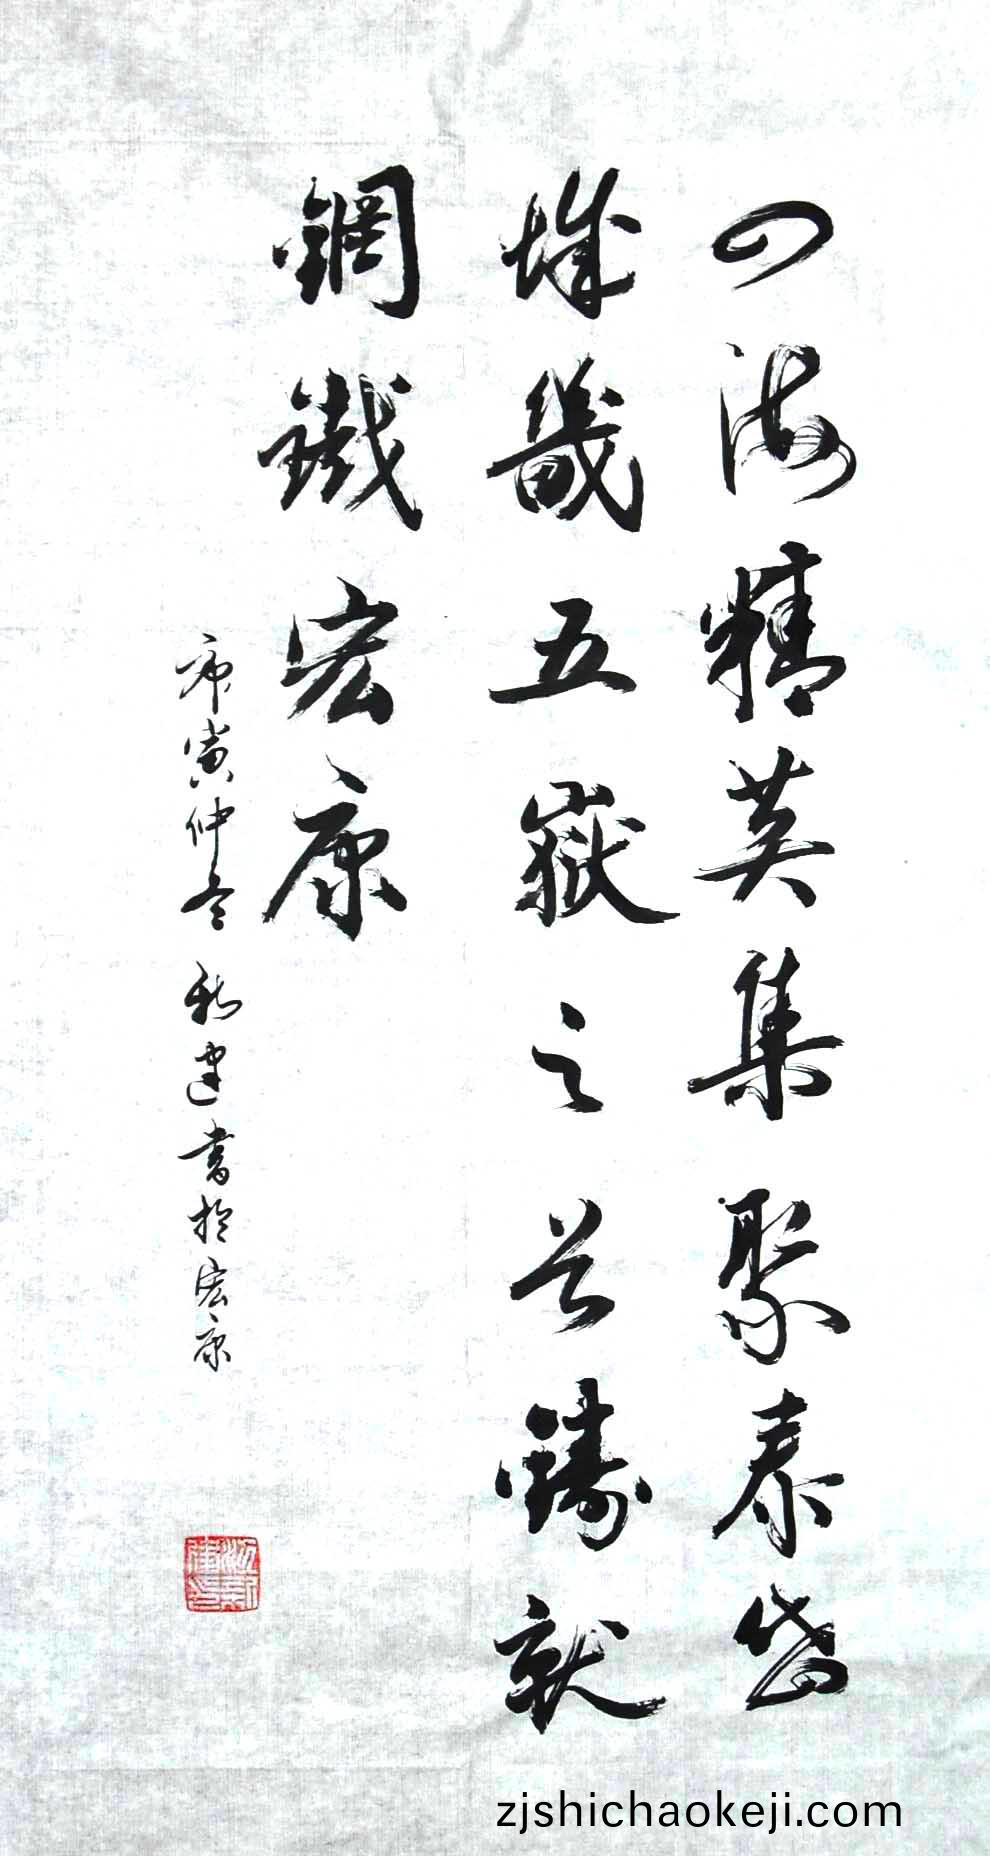 四海精英集聚泰岱
城畿五嶽之首鑄就
鋼鐵宏康
庚寅仲冬新建書於宏康
zjshichaokeji.com